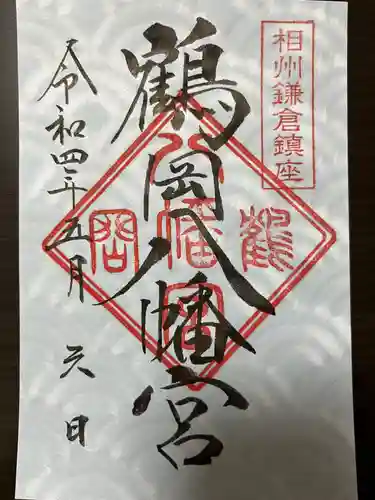 相州鎌倉鎮座
鶴岡八幡宮
鶴岡八幡宮
令和四年五月六日